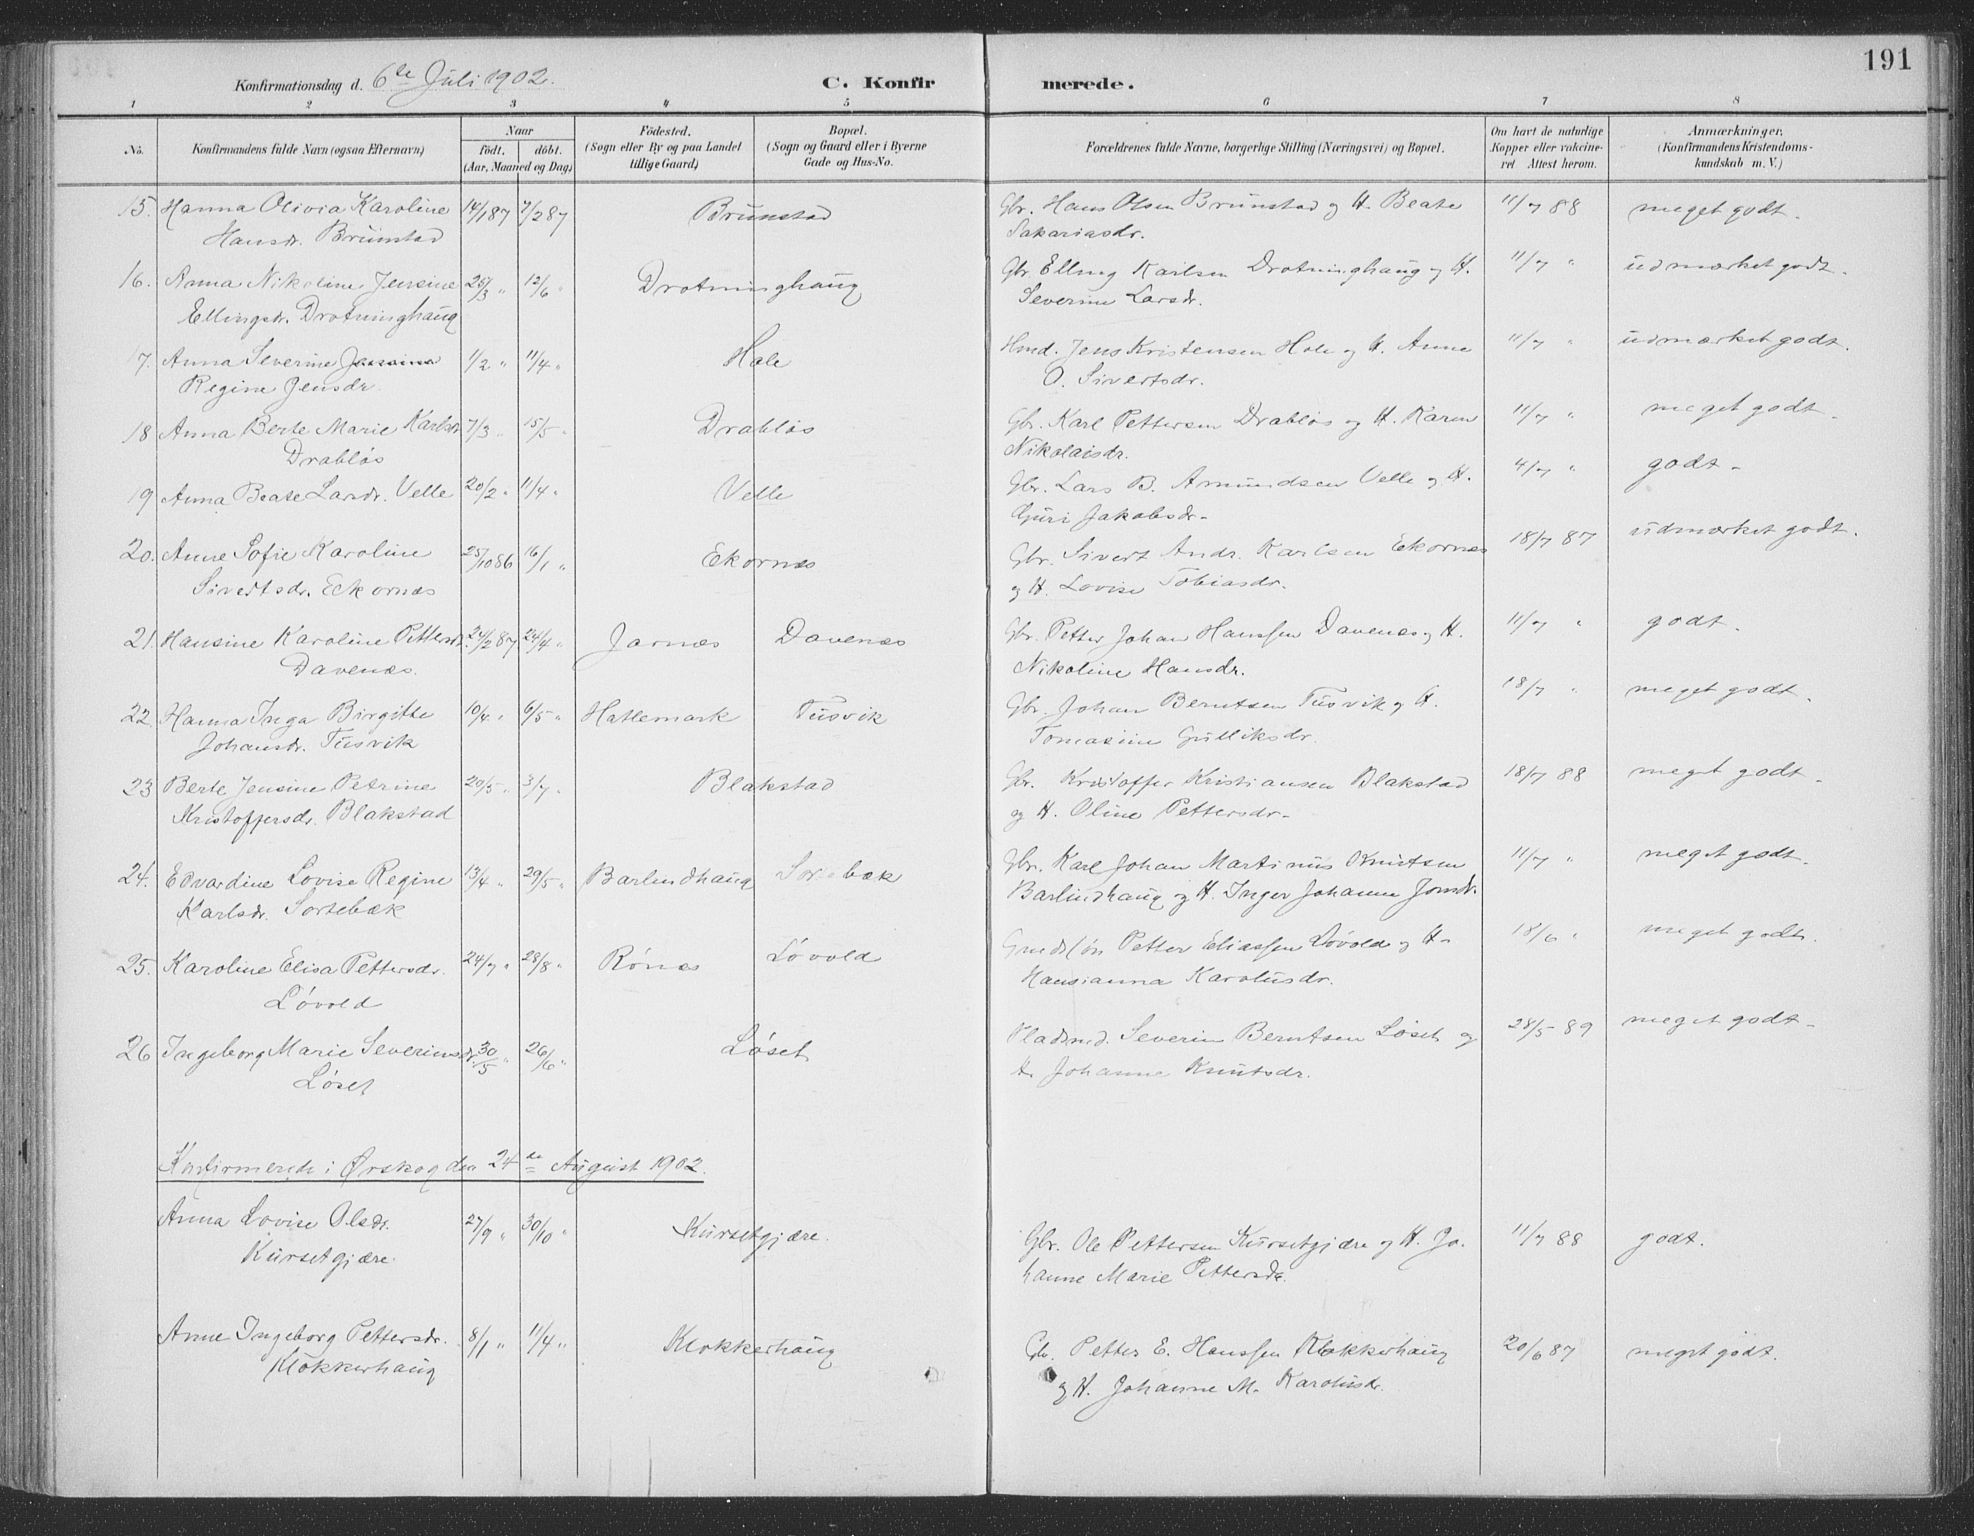 191
Konfirmationsdag d. 6te Juli 1902. C. Konfir merede.
1 2 3 4 5 6 7 8
No. Konfirmandens fulde Navn (ogsaa Efternavn) Naar födt. döbt. (Aar, Maaned og Dag) Födested. (Sogn eller By og paa Landet tillige Gaard) Bopæl. (Sogn og Gaard eller i Byerne Gade og Hus-No. Forældrenes fulde Navne, borgerlige Stilling (Næringsvei) og Bopæl. Om havt de naturlige Kopper eller vakcineret Attest herom. Anmærkninger. (Konfirmandens Kristendomskundskab m. V.)
15. Hanna Olivia Karoline 14/1 87 7/2 87 Brunstad Gbr. Hans Olsen Brunstad og H. Beate 11/7 88 meget godt.
Hansdr. Brunstad Sakariasdr.
16. Anna Nikoline Jensine 25/3 " 12/6 " Drotninghaug Gbr Elling Karlsen Drotninghaug og H. 11/7 " udmærket godt.
Ellingsdr. Drotninghaug Severine Larsdr.
17. Anna Severine 1/2 " 11/4 " Hole Hmd. Jens Kristensen Hole og H. Anne 11/7 " udmærket godt.
Regine Jensdr. O. Sivertsdr.
18 Anna Berte Marie Karlsdr 7/3 " 15/5 " Drabløs Gbr. Karl Pettersen Drabløs og H. Karen 11/7 " meget godt.
Drabløs Nikolaisdr.
19 Anna Beate Larsdr. Velle 20/2 " 11/4 " Velle Gbr. Lars B. Amundsen Velle og H. 4/7 " godt.
Guri Jakobsdr.
20. Anne Sofie Karoline 25/10 86 16/1 " Ekornæs Gbr. Sivert Andr. Karlsen Ekornæs 18/7 87 udmærket godt.
Sivertsdr. Eckornæs og H. Lovise Tobiasdr.
21. Hansine Karoline Pettersdr. 24/2 87 24/4 " Jarnæs Davenæs Gbr. Petter Johan Hanssen Davenæs og H. 11/7 " godt.
Davenæs. Nikoline Hansdr.
22. Hanna Inga Birgitte 10/4 " 6/5 " Hatlemark Tusvik Gbr. Johan Berntsen Tusvik og H. 18/7 " meget godt.
Johansdr. Tusvik Tomasine Gulliksdr.
23 Berte Jensine Petrine 20/5 " 3/7 " Blakstad Gbr. Kristoffer Kristiansen Blakstad 18/7 88 meget godt.
Kristoffersdr. Blakstad og H. Oline Pettersdr.
24. Edvardine Lovise Regine 13/4 " 29/5 " Barlindhaug Sortebæk Gbr. Karl Johan Martinus Knutsen 11/7 " meget godt.
Karlsdr. Sortebæk Barlindhaug og H. Inger Johanne Jonsdr.
25. Karoline Elisa Pettersdr. 24/7 " 28/8 " Rønæs Løvold Petter Eliassen Løvold og H. 18/6 " meget godt.
Løvold Hansianna Karolusdr.
26 Ingeborg Marie Severinsdr. 30/5 " 26/6 " Løset Pladsmd. Severin Berntsen Løset og 28/5 89 meget godt.
Løset H. Johanne Knutsdr.
Konfirmerede i Ørskog den 24de August 1902.
Anna Lovise Olsdr. 27/9 " 30/10 " Kursetgjære. Gbr. Ole Pettersen Kursetgjære og H. Jo- 11/7 88 godt.
Kursetgjære. hanne Marie Pettersdr.
Anne Ingeborg Pettersdr. 8/1 " 11/4 " Klokkerhaug Gb. Petter E. Hanssen Klokkerhaug 20/6 87 meget godt.
Klokkerhaug og H. Johanne M. Karolusdr.